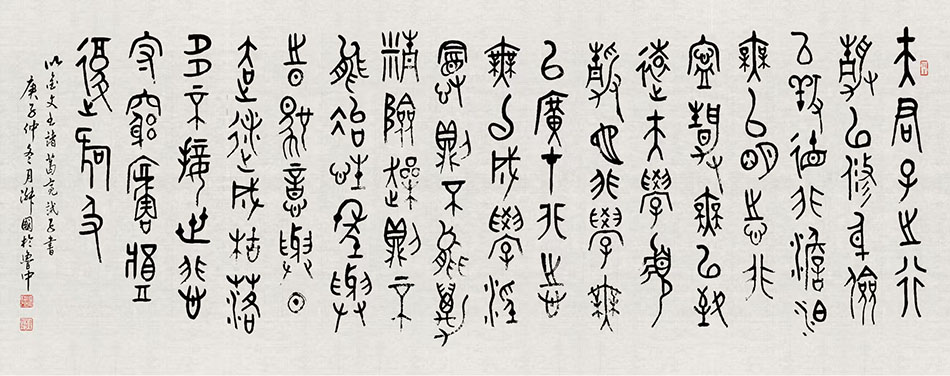 夫君子之行
静以修身儉
以養德非澹泊
無以明志非
寧静無以致
遠夫學須
静也非學無
以廣才非志
無以成學淫
慢則不能勵
精險躁則不
能治性年與
時馳意與日
去遂成枯落
多不接世悲
守窮廬將
復何及
以金文書諸葛亮誡子書
庚子仲冬月國於魯中